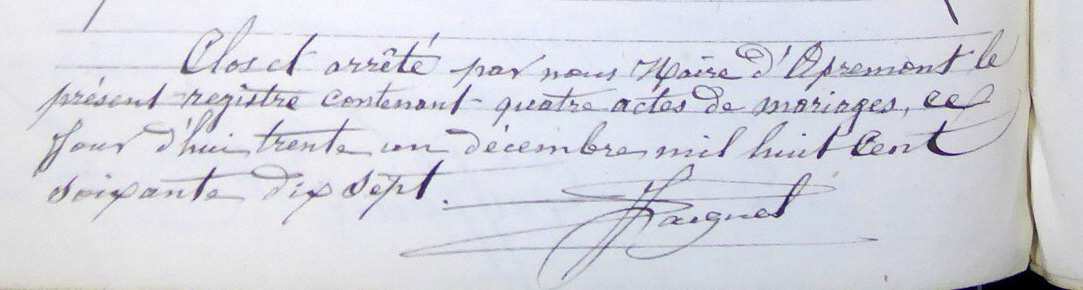 Clos et arrêté par nous Maire d'Apremont le
présent registre contenant quatre actes de mariages, ce
Jour d'hui trente un décembre mil huit Cent
soixante dix sept.